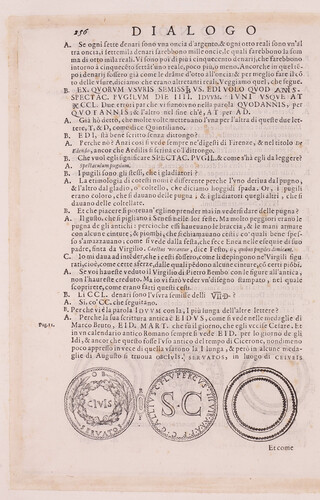 256 DIALOGO
A. Se ogni sette denari sono una oncia d'argento, & ogni otto reali sono un'al
tra oncia, i settemila denari farebbono mille oncie, le quali sarebbono la som
ma di otto mila reali. Vi sono poi di più i cinquecento denari, che farebbono
intorno à cinquecēto settāt'uno reale, poco più, o meno. Ancorche in quel tē-
po i denari fossero già come le drāme d'otto all'oncia; & per meglio fare il cō
to delle viure, diciamo che erano altretanti reali. Veggiamo quel, che segue.
B. EX. QVORVM VSVRIS SEMISSIBVS. EDI VOLO QVOD ANIS.
SPECTAC. PVGILVM DIE IIII. IDVVM. IVNI VSQVE AT
CCL. Due errori par che vi siano: uno nella parola QVODANNIS, per
QVOTANNIS: & l'altro nel fin ch'è, AT per AD.
A. Già hò detto, che molte volte metteuano l'una per l'altra di queste due let-
tere, T, & D, come dice Quintiliano.
B. EDI, stà bene scritto senza dittongo?
A. Perche nò? Anzi così si vede sempre ne' digesti di Firenze, & nel titolo De
Edendo, ancor che Aedilis si scriua co'l dittongo.
B. Che vuol egli significare SPECTAC. PVGIL. & come s'hà egli da leggere?
A. Spectaculum pugilum.
B. I pugili sono gli stessi, che i gladiatori?
A. La etimologia di cotesti nomi è differente perche l'vno deriua dal pugno,
& l'altro dal gladio, o' coltello, che diciamo hoggidì spada. Or, i pugili
erano coloro, che si dauano delle pugna, & i gladiatori quegli altri, che si
dauano delle coltellate.
B. Et che piacere si poteuan'eglino prender mai in veder si dare delle pugna?
A. Il gusto, che si pigliano i Senesi nelle lor feste. Ma molto peggiori erano le
pugna de gli antichi: percioche si haueuano le braccia, & le mani armate
con alcune cinture, & piombi, che si chiamauano cesti; co' quali bene spes-
so s'amazzauano: come si vede dalla festa, che fece Enea nelle esequie di suo
padre, finta da Virgilio. Cestus vocatur, dice Festo, id, quo sis pugiles dimicant.
C. Io mi daua ad intēder, che i cesti fossero, come li dipingono ne' Virgili figu
rati, cioè, come certe sferze, dalle quali pēdono alcune cinture, cō certi piōbi.
A. Se voi haueste veduto il Virgilio di Pietro Bembo con le figure all'antica,
non l'haureste creduto. Ma io vi farò veder vn disegno stampato, nel quale
scoprirete, come erano fatti questi cesti.
B. Li CCL. denari sono l'vsura semisse delli VII D.
A. Sì, co' CC. che seguitano.
B. Perche vi è la parola IDVVM con la, I più lunga dell'altre lettere?
A. Perche la sua scrittura antica è EIDVS, come si vede nelle medaglie di
Pag. 11. Marco Bruto, EID. MART. che fu il giorno, che egli vccise Cesare. Et in
vn calendario antico Romano sempre si vede EID. per lo giorno de gli
Idi; & ancor che questo fosse l'vso antico del tempo di Cicerone, nondimeno
poco appresso inuece di quella vsarono la I lunga, & però in alcune meda-
glie di Augusto si truoua OB CIVIS. SERVATOS, in luogo di CEIVEIS
OB
CIVIS
SERVATOS
S·C
Et come